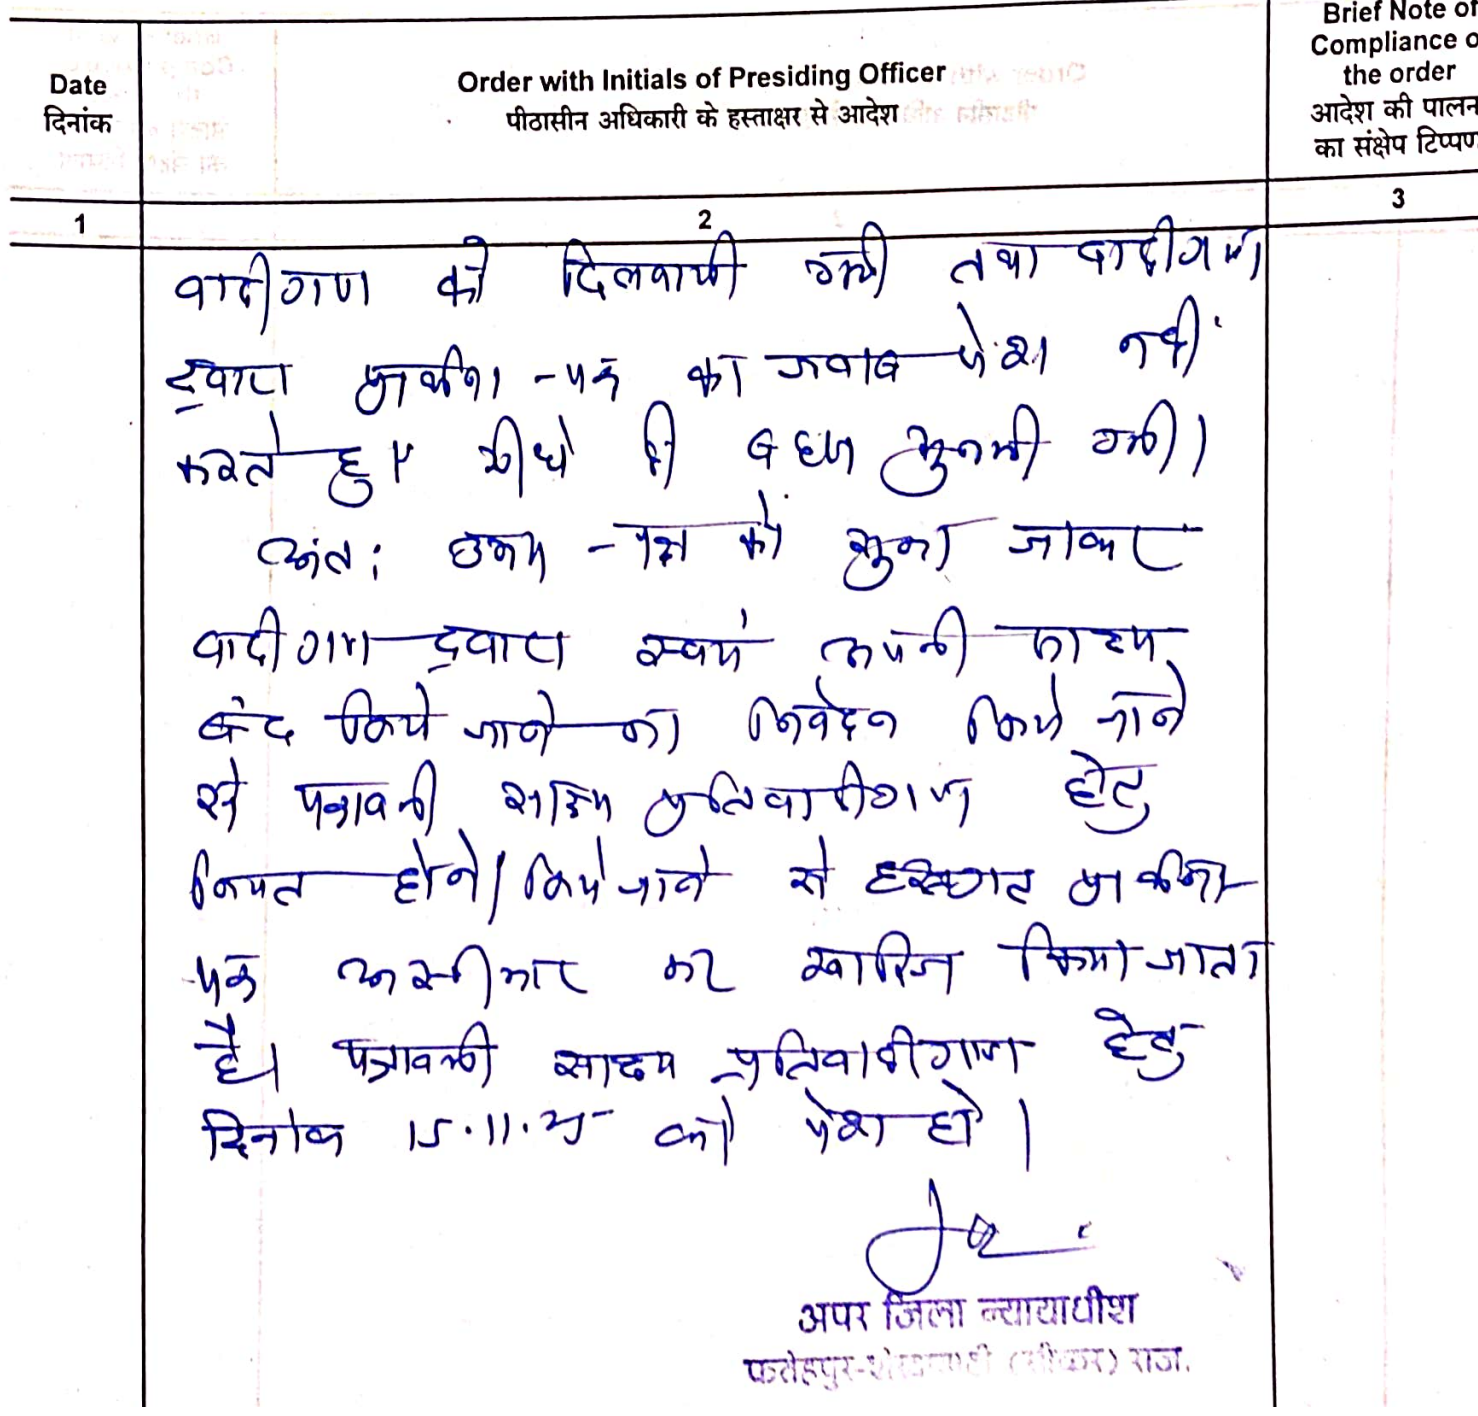 Date
दिनांक
Order with Initials of Presiding Officer
पीठासीन अधिकारी के हस्ताक्षर से आदेश
Brief Note of
Compliance o
the order
आदेश की पालन
का संक्षेप टिप्पण
1
2
3
वादीगण को दिलवायी गयी तथा वादीगण
द्वारा प्रार्थना-पत्र का जवाब पेश नहीं
करते हुए सीधे ही बहस सुनायी गयी।
अंत: उभय-पक्ष को सुना जाकर
वादीगण द्वारा स्वयं अपनी साक्ष्य
बंद किये जाने का निवेदन किये जाने
से पत्रावली साक्ष्य प्रतिवादीगण हेतु
नियत होने/किये जाने से हस्तगत प्रार्थना-
पत्र अस्वीकार कर खारिज किया जाता
है। पत्रावली साक्ष्य प्रतिवादीगण हेतु
दिनांक 15.11.25 को पेश हो।
अपर जिला न्यायाधीश
फतेहपुर-शेखावाटी (सीकर) राज.